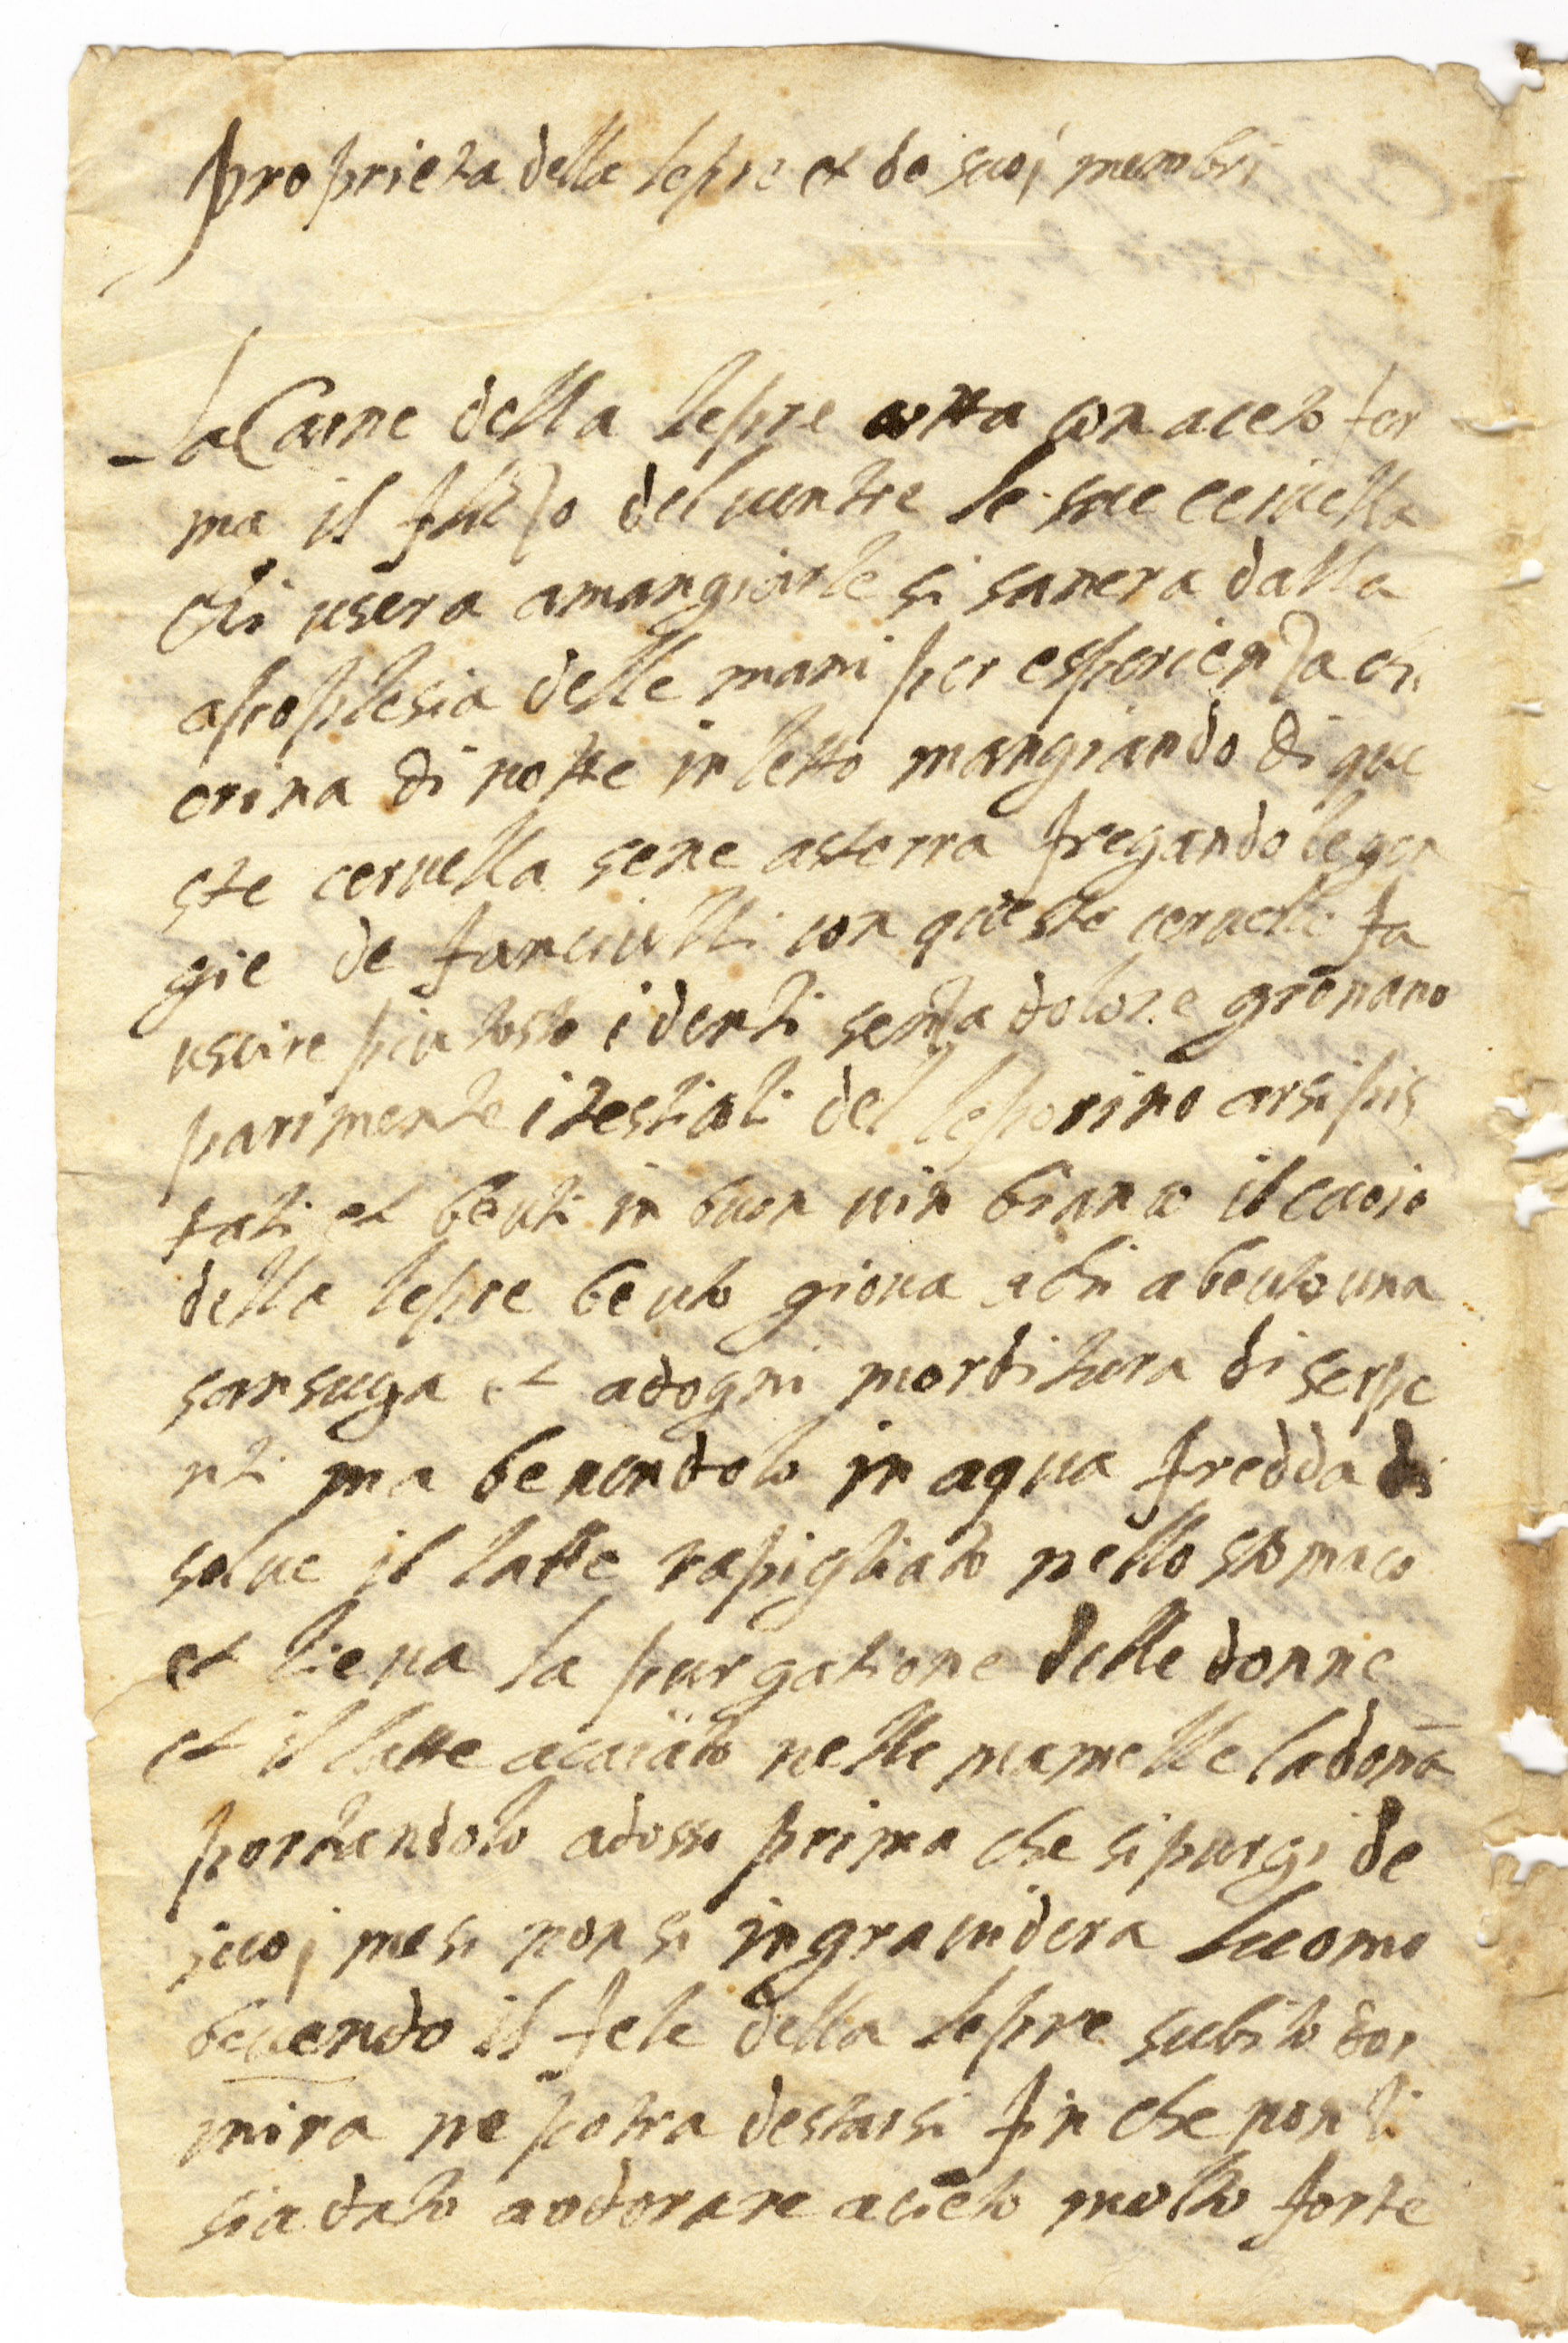 proprieta della lepre et de suoj membri
la Carne della lepre cotta con aceto fer
ma il flusso del uentre le sue ceruella
chi usera a mangiarle si sanera dalla
apoplesia delle mani per esperienza chi
orina di notte in letto mangiando di que
ste ceruella sene asterra fregando le gen
gie de fanciulli con queste ceruella fa
uscire piu tosto i denti senza dolore giouano
parimente i testicoli del leporino arsi pis
tati et beuti in buon uin bianco il cuoio
della lepre beuto gioua a chi a beuto una
sansuga et adogni morditura di serpe
nti ma beuendolo in aqua fredda di
solue il latte rapigliato nello stomaco
et lieua la purgatione delle donne
et il latte acaiato nelle mamelle la dona
portandolo adosso prima che si purgi de
suoj mesi non si ingrauidera luomo
beuendo il fele della lepre subito dor
mira ne potra destarsi fin che non li
sia dato a odorare acieto molto forte